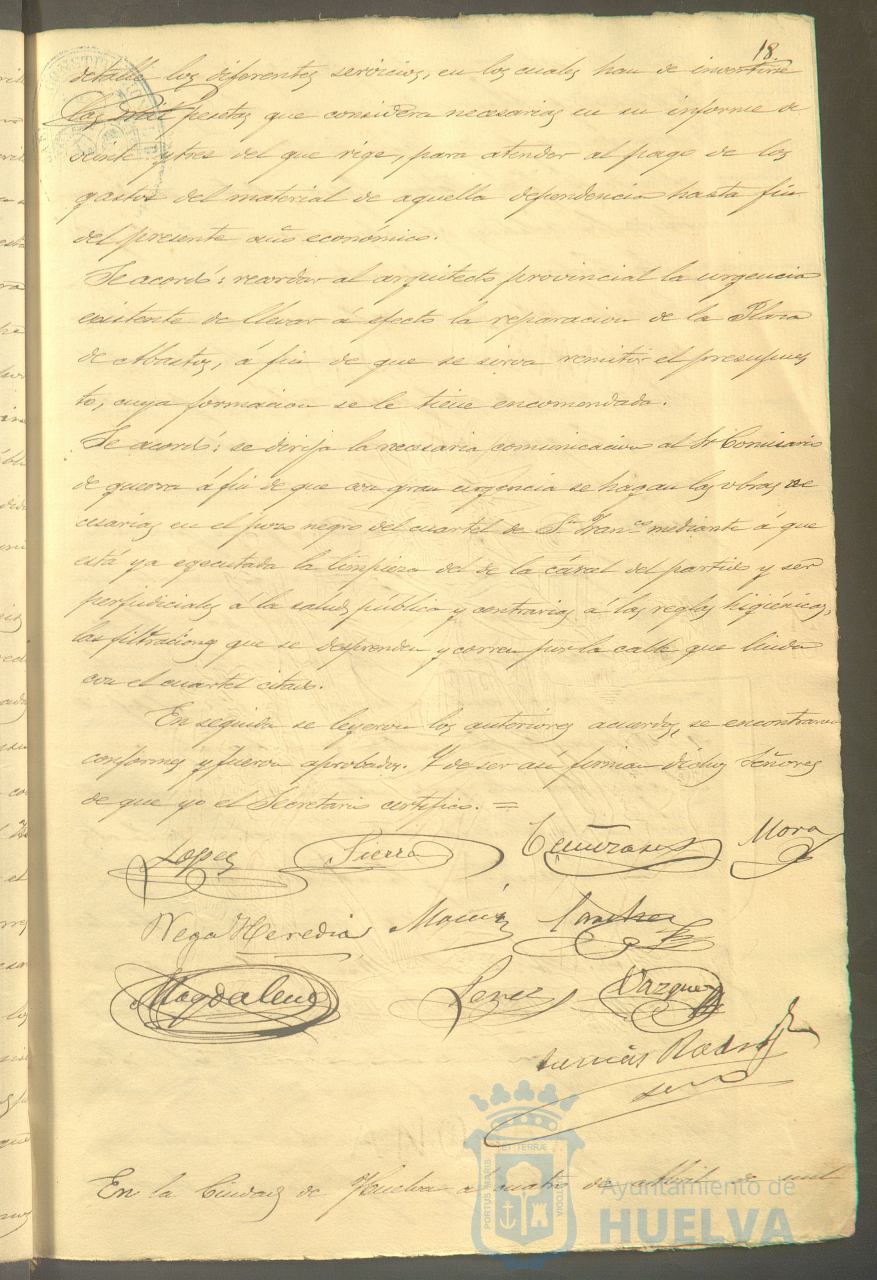 18.
detalle los diferentes servicios, en los cuales han de invertirse
las mil pesetas que considera necesarias en su informe de
veinte y tres del que rige, para atender al pago de los
gastos del material de aquella dependencia hasta fin
del presente año económico.
Se acordó: recordar al arquitecto provincial la urgencia
existente de llevar á efecto la reparacion de la Plaza
de Abastos, á fin de que se sirva remitir el presupues
to, cuya formacion se le tiene encomendada.
Se acordó: se dirija la necesaria comunicacion al Sr Comisario
de guerra á fin de que con gran urgencia se hagan las obras ne
cesarias en el pozo negro del cuartel de Sn Franco mediante á que
está ya egecutada la limpieza del de la cárcel del partido y ser
perjudiciales á la salud pública y contrarias á las reglas higiénicas,
las filtraciones que se desprenden y corren por la calle que linda
con el cuartel citado.
En seguida se leyeron los anteriores acuerdos, se encontraron
conformes y fueron aprobados. Y de ser así firman dichos Señores
de que yo el Secretario certifico. =
Lopez Sierra Mora
Vega Heredia
Magdaleno Perez Vazquez
En la Ciudad de Huelva á cuatro de Abril de mil
PORTUS MARIS ET TERRÆ CUSTODIA
Ayuntamiento de
HUELVA